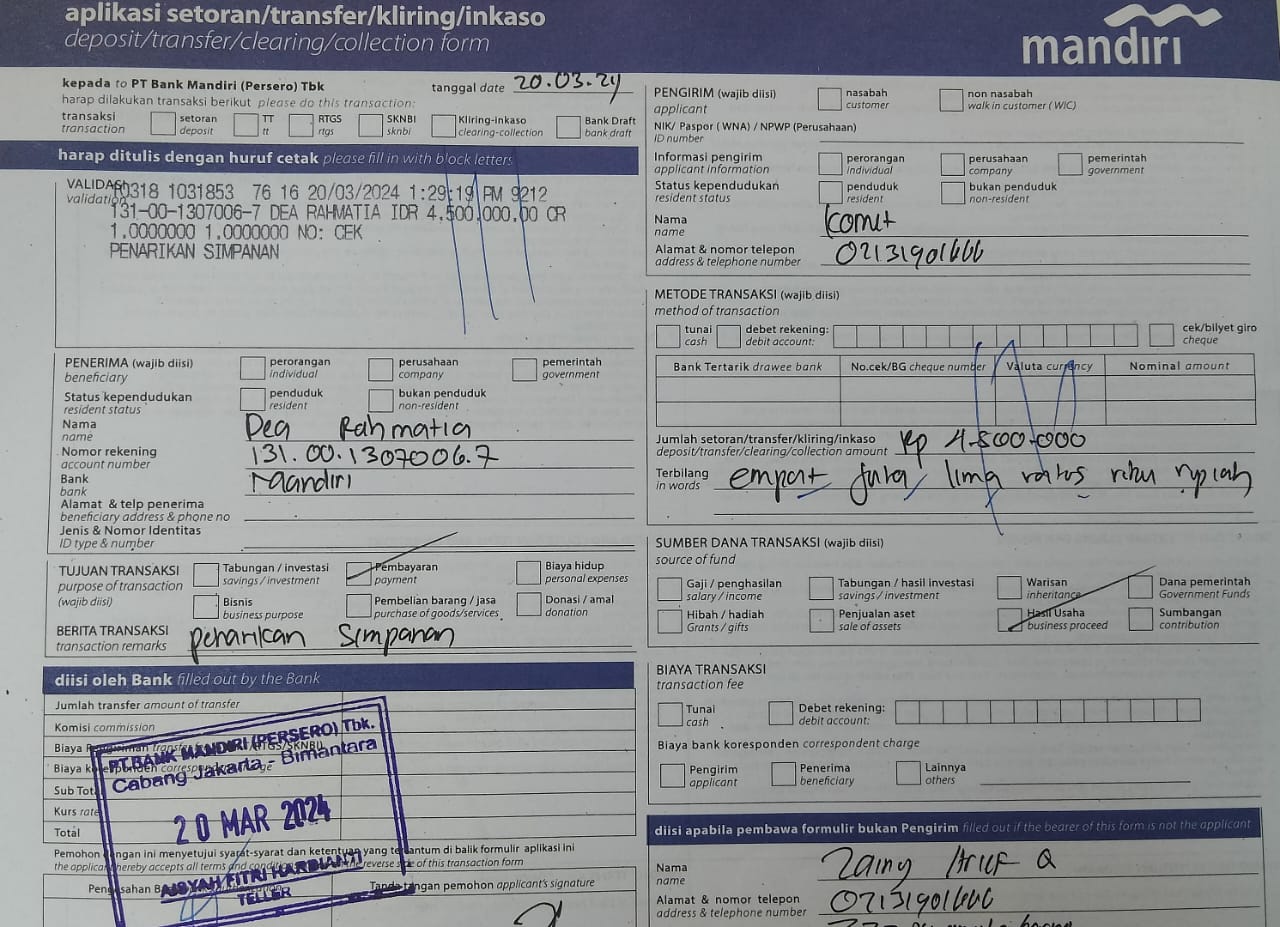 aplikasi setoran/transfer/kliring/inkaso
deposit/transfer/clearing/collection form
mandiri
kepada to PT Bank Mandiri (Persero) Tbk
tanggal date 20.03.24
harap dilakukan transaksi berikut please do this transaction:
transaksi transaction
setoran deposit
TT tt
RTGS rtgs
SKNBI sknbi
Kliring-inkaso clearing-collection
Bank Draft bank draft
harap ditulis dengan huruf cetak please fill in with block letters
VALIDASI validation
10318 1031853 76 16 20/03/2024 1:29:19 PM 9212
131-00-1307006-7 DEA RAHMATIA IDR 4,500,000.00 CR
1.0000000 1.0000000 NO: CEK
PENARIKAN SIMPANAN
PENERIMA (wajib diisi) beneficiary
perorangan individual
perusahaan company
pemerintah government
Status kependudukan resident status
penduduk resident
bukan penduduk non-resident
Nama name Dea Rahmatia
Nomor rekening account number 131.00.1307006.7
Bank bank Mandiri
Alamat & telp penerima
beneficiary address & phone no
Jenis & Nomor Identitas
ID type & number
TUJUAN TRANSAKSI purpose of transaction (wajib diisi)
Tabungan / investasi savings / investment
Pembayaran payment
Biaya hidup personal expenses
Bisnis business purpose
Pembelian barang / jasa purchase of goods/services
Donasi / amal donation
BERITA TRANSAKSI transaction remarks penarikan simpanan
diisi oleh Bank filled out by the Bank
Jumlah transfer amount of transfer
Komisi commission
Biaya
Biaya
Sub Total
Kurs rate
Total
PT BANK MANDIRI (PERSERO) Tbk.
Cabang Jakarta - Bimantara
20 MAR 2024
AISYAH FITRI HARDIANTI
TELLER
Pemohon dengan ini menyetujui syarat-syarat dan ketentuan yang tercantum di balik formulir aplikasi ini
the applicant hereby accepts all terms and conditions the reverse side of this transaction form
Tanda tangan pemohon applicant's signature
PENGIRIM (wajib diisi) applicant
nasabah customer
non nasabah walk in customer (WIC)
NIK/ Paspor (WNA) / NPWP (Perusahaan)
ID number
Informasi pengirim applicant information
perorangan individual
perusahaan company
pemerintah government
Status kependudukan resident status
penduduk resident
bukan penduduk non-resident
Nama name Komet
Alamat & nomor telepon address & telephone number 02131901666
METODE TRANSAKSI (wajib diisi)
method of transaction
tunai cash
debet rekening: debit account:
cek/bilyet giro cheque
Bank Tertarik drawee bank
No.cek/BG cheque number
Valuta currency
Nominal amount
Jumlah setoran/transfer/kliring/inkaso deposit/transfer/clearing/collection amount Rp 4.500.000
Terbilang in words empat juta lima ratus ribu rupiah
SUMBER DANA TRANSAKSI (wajib diisi)
source of fund
Gaji / penghasilan salary / income
Tabungan / hasil investasi savings / investment
Warisan inheritance
Dana pemerintah Government Funds
Hibah / hadiah Grants / gifts
Penjualan aset sale of assets
Hasil Usaha business proceed
Sumbangan contribution
BIAYA TRANSAKSI
transaction fee
Tunai cash
Debet rekening: debit account:
Biaya bank koresponden correspondent charge
Pengirim applicant
Penerima beneficiary
Lainnya others
diisi apabila pembawa formulir bukan Pengirim filled out if the bearer of this form is not the applicant
Nama name Zainy Arief Q
Alamat & nomor telepon address & telephone number 02131901666